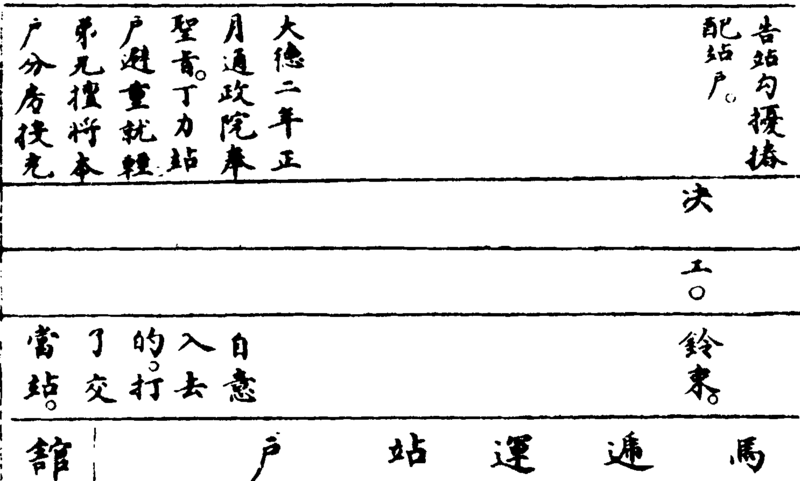 告站勾擾椿
配站户。
大德二年正
月通政院奉
聖旨。丁力站
户避重就輕
弟兄擅將本
户分房投充
决
工〇
鈐束。
自意
入去
的。打
了交
當站。
馬遞運站户
館